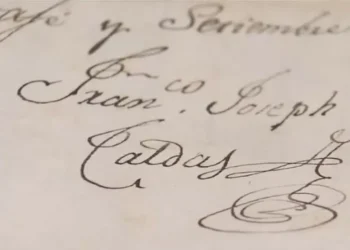 y Deciembre
Fran.co Joseph
Caldas